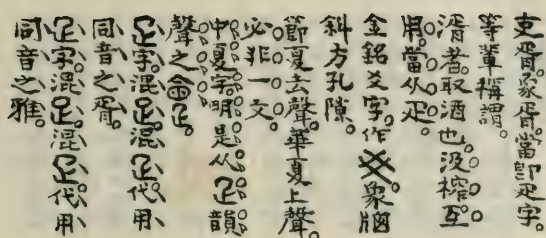 吏胥。象胥。當卽疋字。
等輩稱謂。
湑者。取酒也。汲榨。互
用。當从疋。
金銘爻字。作㸚。象牕
斜方孔隙。
節夏去聲。華夏上聲。
必非一文。
中夏字。明是从疋。韻
聲之僉疋。
疋字。混疋。混疋代用
同音之胥。
疋字。混疋。混疋代用
同音之雅。